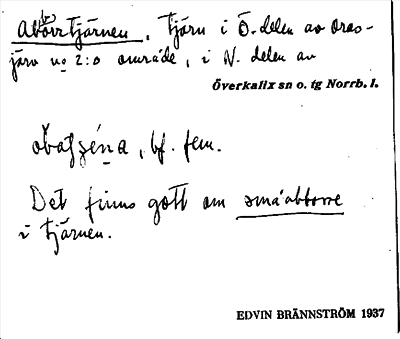 Abborrtjärnen, tjärn i Ö. delen av Oras-
järv no 2:o område, i N. delen av
Överkalix sn o. tg Norrb. l.
bf. fem.
Det finns gott om småabborre
i tjärnen.
EDVIN BRÄNNSTRÖM 1937